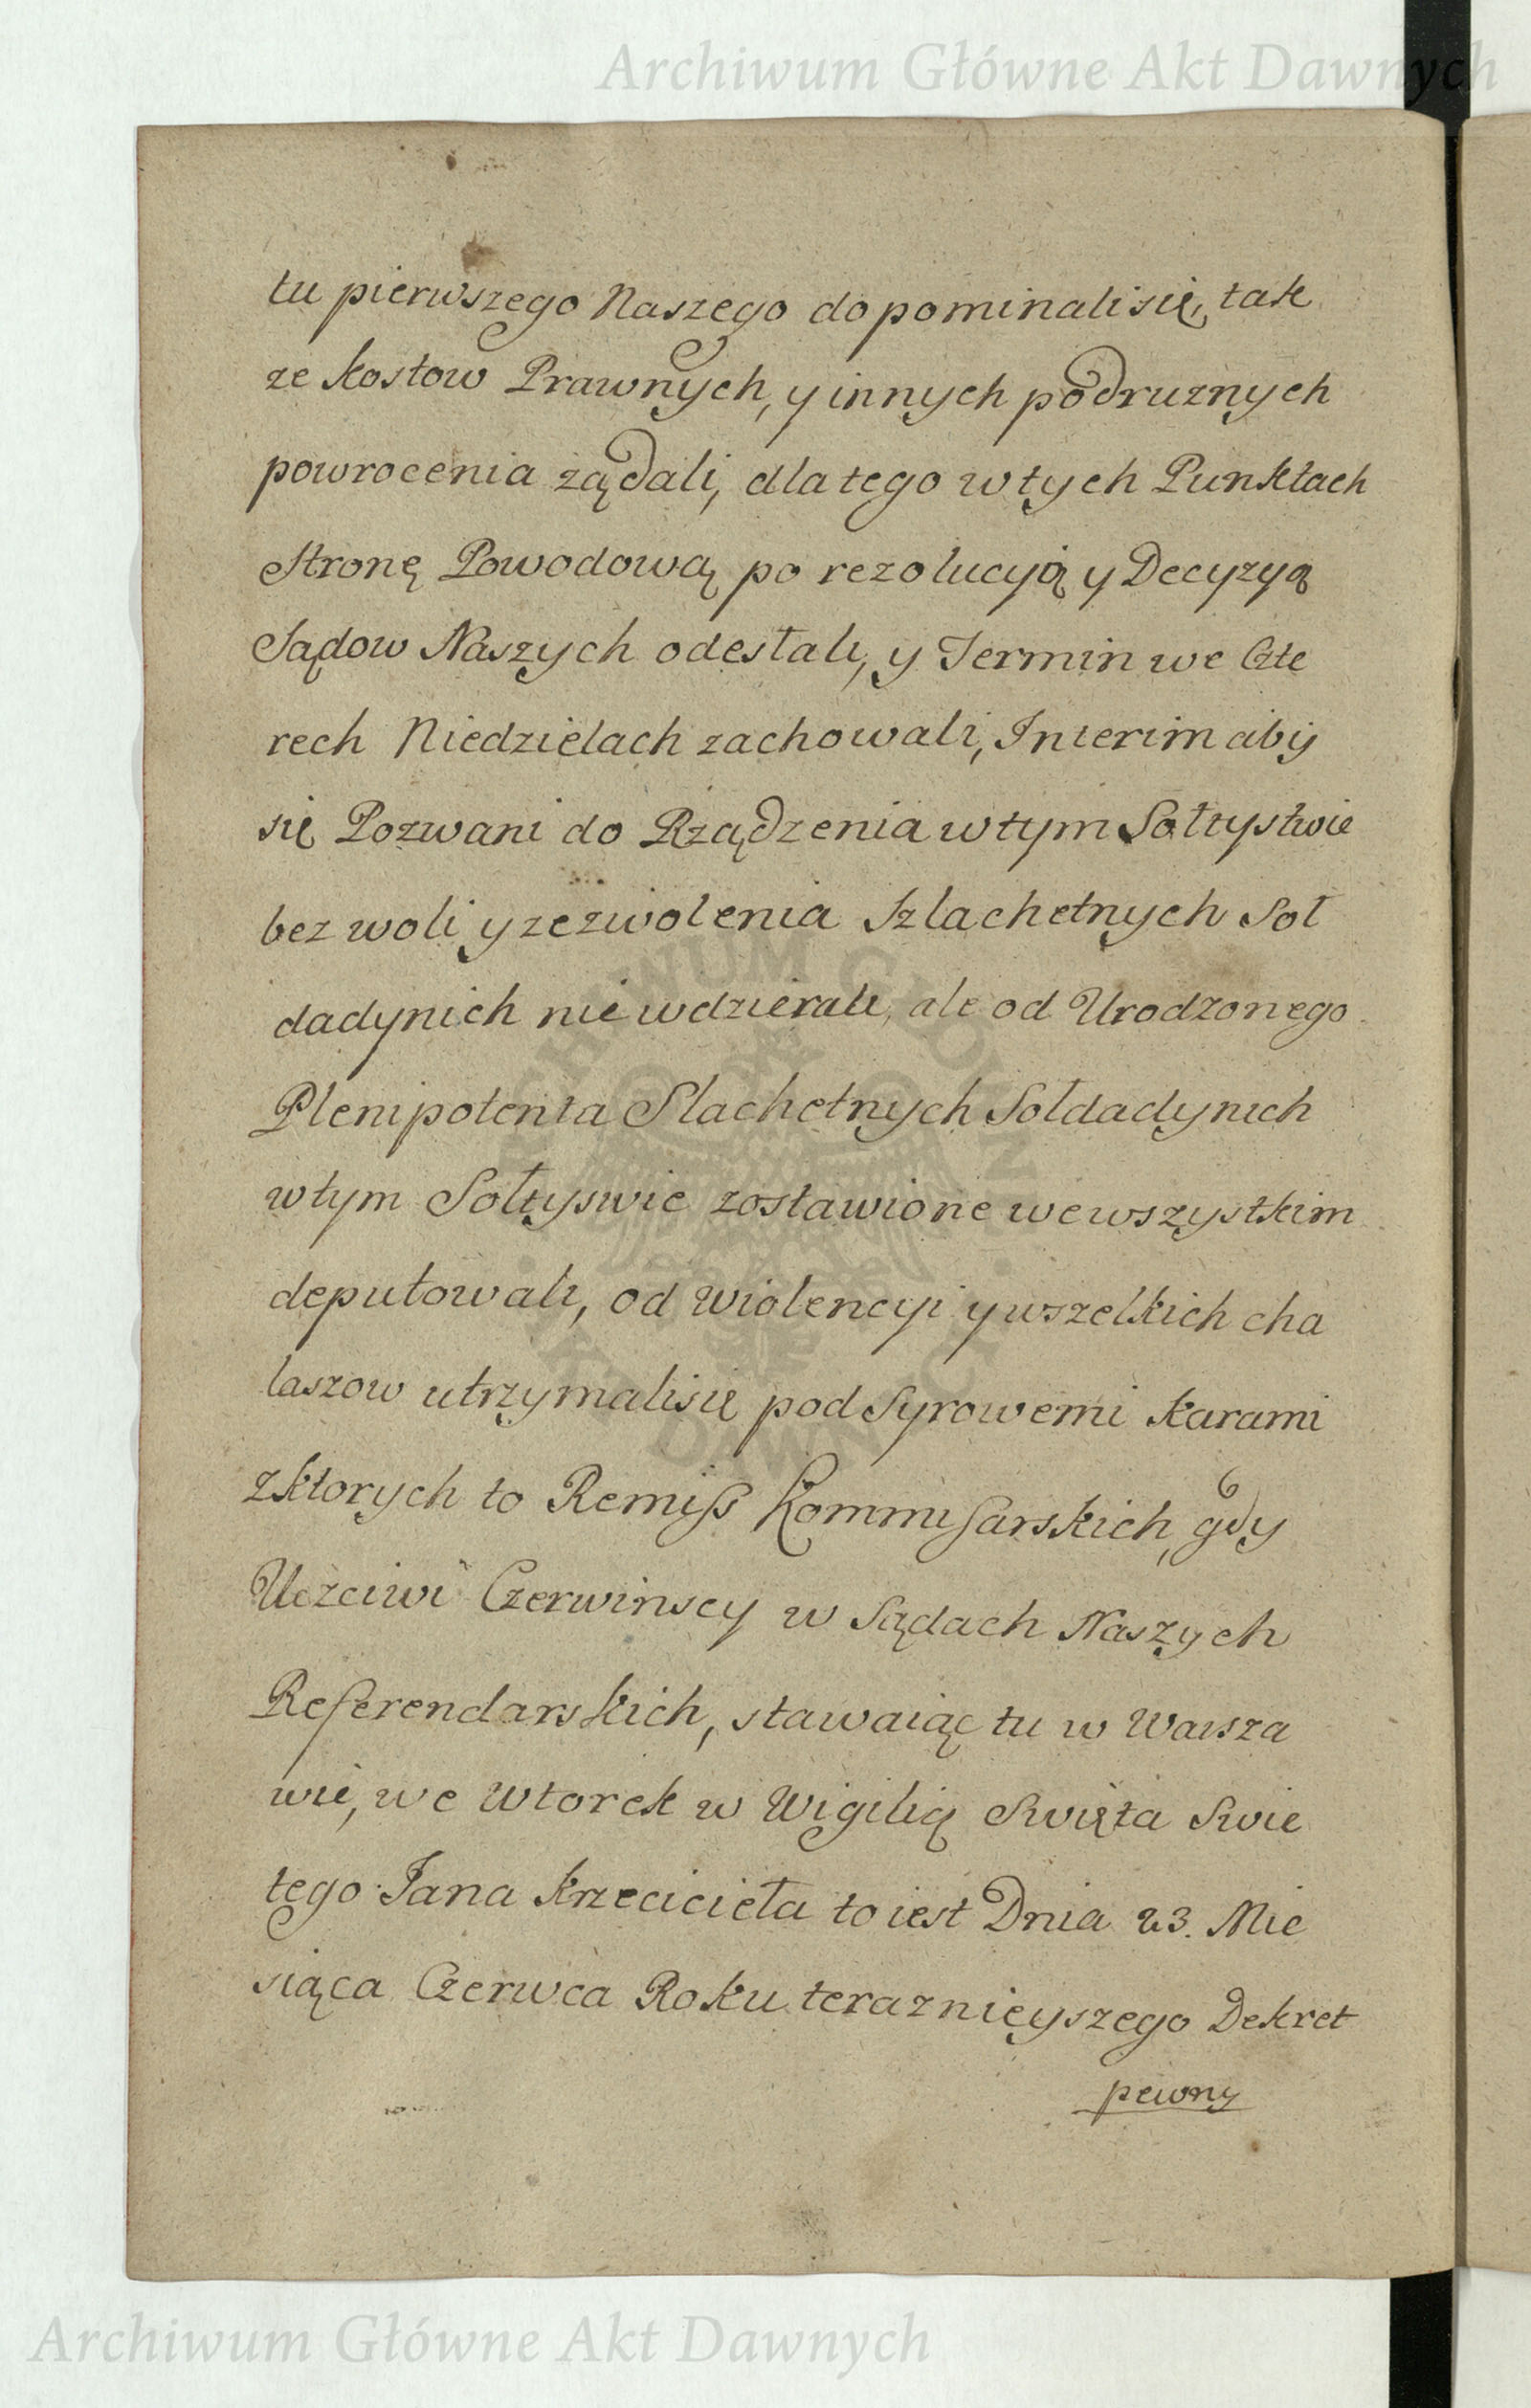 Archiwum Główne Akt Dawnych
tu pierwszego Naszego dopominali się, tak
ze kosztow Prawnych, y innych podruznych
powrocenia ządali, dla tego w tych Punktach
Stronę Powodową po rezolucyią y Decyzyą
Sądow Naszych odesłali, y Termin we Czte
rech Niedzielach zachowali, Interim aby
się Pozwani do Rządzenia w tym Sołtystwie
bez woli y zezwolenia Szlachetnych Soł
dadynich nie wdzierali, ale od Urodzonego
Plenipotenta Slachetnych Sołdadynich
w tym Sołtyswie zostawione we wszystkim
deputowali, od wiolencyi y wszelkich cha
łaszow utrzymali się pod Syrowemi karami
z ktorych to Remiss Kommissarskich, gdy
Uczciwi Czerwinscy w Sądach Naszych
Referendarskich, stawaiąc tu w Warsza
wie, we Wtorek w Wigilią Swięta Swie
tego Jana Krzeciciela to iest Dnia 23. Mie
siąca Czerwca Roku teraznieyszego Dekret
pewny
Archiwum Główne Akt Dawnych